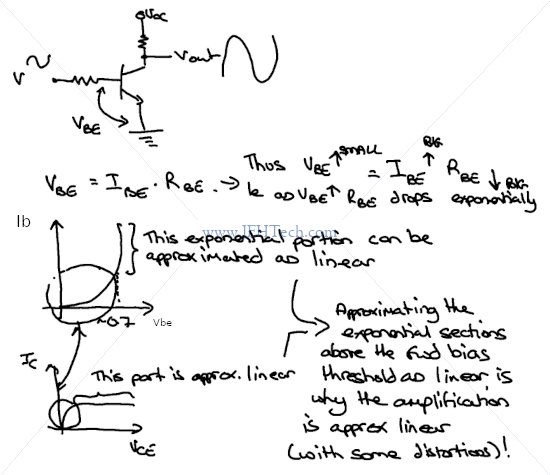 Vcc
V
Vout
VBE
Thus VBE ↑ SMALL = IBE ↑ BIG RBE ↓ BIG
VBE = IBE . RBE. → ie as VBE ↑ RBE drops exponentially
www.JEHTech.com
Ib
This exponential portion can be
approximated as linear
~0.7
Vbe
Approximating the
exponential sections
above the fwd bias
threshold as linear is
why the amplification
is approx linear
(with some distortions)!
IC
This part is approx. linear
VCE